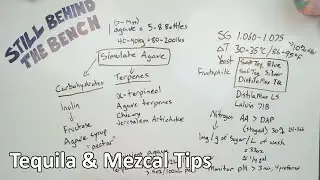 STILL BEHIND
THE BENCH
(7-10yr)
1 agave = 5-8 Bottles
40-90kg = 80-200lbs
Simulate Agave
Carbohydrates
Terpenes
Inulin
Fructose
Agave syrup
"nectar"
α-terpineol
Agave terpenes
Chicory
Jerusalem Artichoke
SG 1.060-1.075
ΔT 30-35°C/86-95°F
Yeast
Fructophilic
SafTeq Blue
SafTeq Silver
DistilaMax TQ
DistilaMax LS
Lalvin 71B
Nitrogen AA > DAP
(staged) 30%
1mg/g of Sugar/L of wash
Monitor pH > 3.0, 4 preferred
Tequila & Mezcal Tips